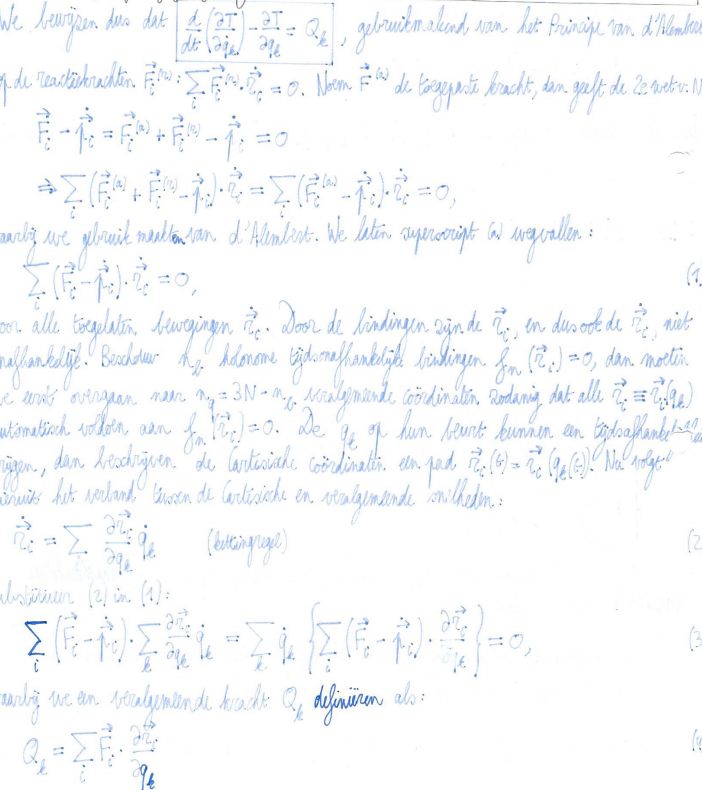 We bewijzen dus dat d/dt (∂T/∂q̇_k) - ∂T/∂q_k = Q_k , gebruikmakend van het Principe van d'Alembert
op de reactiekrachten F⃗_i^(r): ∑_i F⃗_i^(r) · ṙ⃗_i = 0. Noem F⃗^(a) de toegepaste kracht, dan geeft de 2e wet v. N
F⃗_i - ṗ⃗_i = F⃗_i^(a) + F⃗_i^(r) - ṗ⃗_i = 0
⇒ ∑_i (F⃗_i^(a) + F⃗_i^(r) - ṗ⃗_i) · ṙ⃗_i = ∑_i (F⃗_i^(a) - ṗ⃗_i) · ṙ⃗_i = 0,
aarbij we gebruik maakten van d'Alembert. We laten superscript (a) wegvallen :
∑_i (F⃗_i - ṗ⃗_i) · ṙ⃗_i = 0, (1.
oor alle toegelaten bewegingen ṙ⃗_i. Door de bindingen zijn de r⃗_i, en dus ook de ṙ⃗_i, niet
nafhankelijk. Beschouw n_b holonome tijdsonafhankelijke bindingen f_n(r⃗_i) = 0, dan moeten
e eerst overgaan naar n_q = 3N - n_b veralgemeende coördinaten zodanig dat alle r⃗_i ≡ r⃗_i(q_k)
utomatisch voldoen aan f_n(r⃗_i) = 0. De q_k op hun beurt kunnen een
rijgen, dan beschrijven de Cartesische coördinaten een pad r⃗_i(t) = r⃗_i(q_k(t)). Nu volgt
ieruit het verband tussen de Cartesische en veralgemeende snelheden :
ṙ⃗_i = ∑_k ∂r⃗_i/∂q_k q̇_k (kettingregel) (2
ubstitueer (2) in (1) :
∑_i (F⃗_i - ṗ⃗_i) · ∑_k ∂r⃗_i/∂q_k q̇_k = ∑_k q̇_k {∑_i (F⃗_i - ṗ⃗_i) · ∂r⃗_i/∂q_k} = 0, (3
aarbij we een veralgemeende kracht Q_k definiëren als :
Q_k = ∑_i F⃗_i · ∂r⃗_i/∂q_k (4